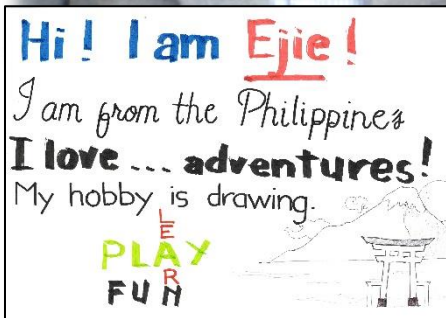 Hi! I am Ejie!
I am from the Philippines
I love ... adventures!
My hobby is drawing.
LEARN
PLAY
FUN